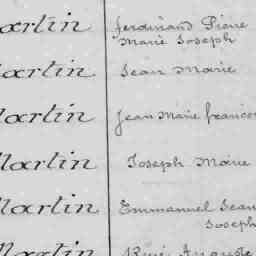 Martin Ferdinand Pierre
Marie Joseph
Martin Jean Marie
Martin Jean Marie François
Martin Joseph Marie
Martin Emmanuel Jean
Joseph
Martin René Auguste